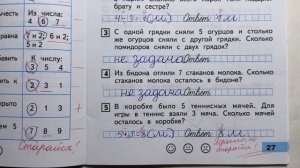 честь
Из числа:
4 6
равна
7 и 2; 6 и 2;
5 и 2
К числу:
вить к
3 5 4
2
крыто
1 2 3
ем 5
7 8 9
Старайся!
брату и сестре?
Ответ:
3 С одной грядки сняли 5 огурцов и столько
же огурцов сняли с другой грядки. Сколько
помидоров сняли с двух грядок?
не задача Ответ:
4 Из бидона отлили 7 стаканов молока. Сколько
стаканов молока осталось в бидоне?
не задача Ответ:
5 В коробке было 5 теннисных мячей. Для
игры в теннис взяли 3 мяча. Сколько мячей
осталось в коробке?
Ответ:
27